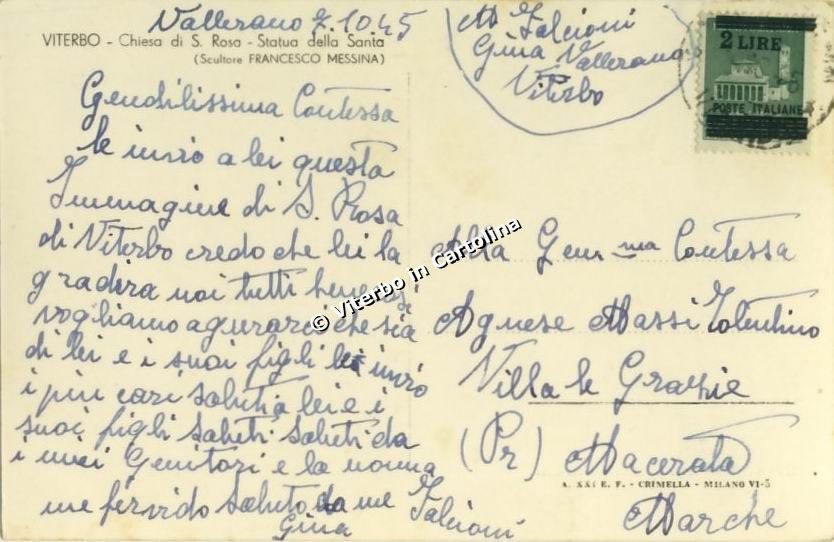 Vallerano 7.10.45
VITERBO - Chiesa di S. Rosa - Statua della Santa
(Scultore FRANCESCO MESSINA)
Gendilissima Contessa
le invio a lei questa
Immagine di S. Rosa
di Viterbo credo che lei la
gradira noi tutti bene
vogliamo agurarci che sia
di lei e i suoi figli invio
i piu cari saluti a lei e i
suoi figli saluti saluti da
i miei Genitori e la nonna
un fervido saluto da me Falcioni
Gina
M Falcioni
Gina Vallerano
Viterbo
2 LIRE
POSTE ITALIANE
Alla Gen ma Contessa
Agnese Massi Tolentino
Villa le Grazie
(Pr) Macerata
A. XXI E. F. - CRIMELLA - MILANO VI-5
Marche
© Viterbo in Cartolina